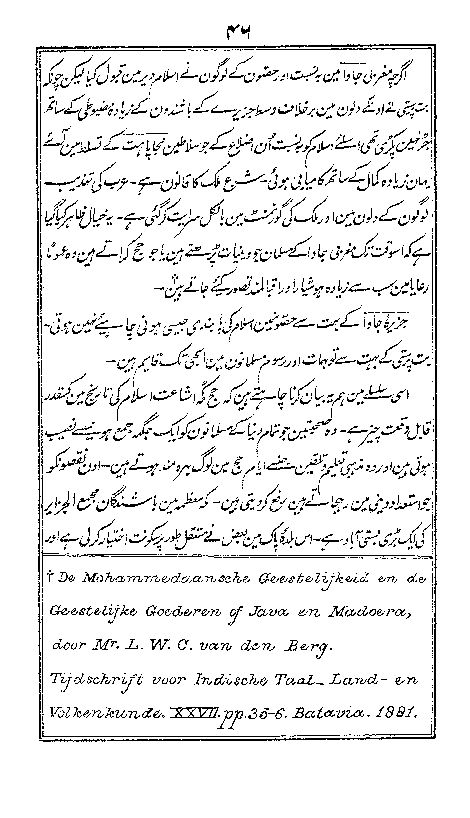 ۴۶
اگرچہ مغربی جاوا مین بہ نسبت اور حصّون کے لوگون نے اسلام دیر مین قبول کیا لیکن چونکہ
بت پرستی نے اونکے دلون مین برخلاف وسط جزیرے کے باشندون کے زیادہ مضبوطی کے ساتھ
جڑ نہین پکڑی تھی؛ اسلئے اسلام کو بہ نسبت اُن اضلاع کے جو سلاطین مجاپاہت کے تسلط مین آئے
یہان زیادہ کمال کے ساتھ کامیابی ہوئی۔ شرع ملک کا قانون ہے۔ عرب کی تہذیب
لوگون کے دلون مین اور ملک کی گورنمنٹ مین بالکل سرایت کر گئی ہے۔ یہ خیال ظاہر کیا گیا
ہے کہ اسوقت تک مغربی جاوا کے مسلمان جو دینیات پڑھتے ہین یا جو حج کر آتے ہین وہ عموماً
رعایا مین سب سے زیادہ ہوشیار اور اقبالمند تصور کیئے جاتے ہین۔
جزیرۂ جاوا کے بہت سے حصّونمین اسلام کی پابندی جیسی ہونی چاہیئے نہین ہوتی۔
بت پرستی کے بہت سے توہمات اور رسوم مسلمانون مین ابھی تک قایم ہین۔
اسی سلسلے مین ہم یہ بیان کرنا چاہتے ہین کہ حج کہ اشاعت اسلام کی تاریخ مین کسقدر
قابل وقعت چیز ہے۔ وہ صحبتین جو تمام دنیا کے مسلمانون کو ایک جگہ جمع ہونیسے نصیب
ہوتی ہین اور وہ مذہبی تعلیم و تلقین جنسے ایام حج مین لوگ بہرہ مند ہوتے ہین۔ اون نقصونکو
جو استعداد دینی مین رہجاتے ہین رفع کر دیتی ہین۔ مکہ معظمہ مین باشندگان مجمع الجزایر
کی ایک بڑی بستی آباد ہے۔ اس بلدۂ پاک مین بعض نے مستقل طور پر سکونت اختیار کر لی ہے اور
† De Mohammedaansche Geestelijkeid en de
Geestelijke Goederen of Java en Madoera,
door Mr. L. W. C. van den Berg.
Tijdschrift voor Indische Taal- Land- en
Volkenkunde. XXVII. pp. 35-6. Batavia. 1881.